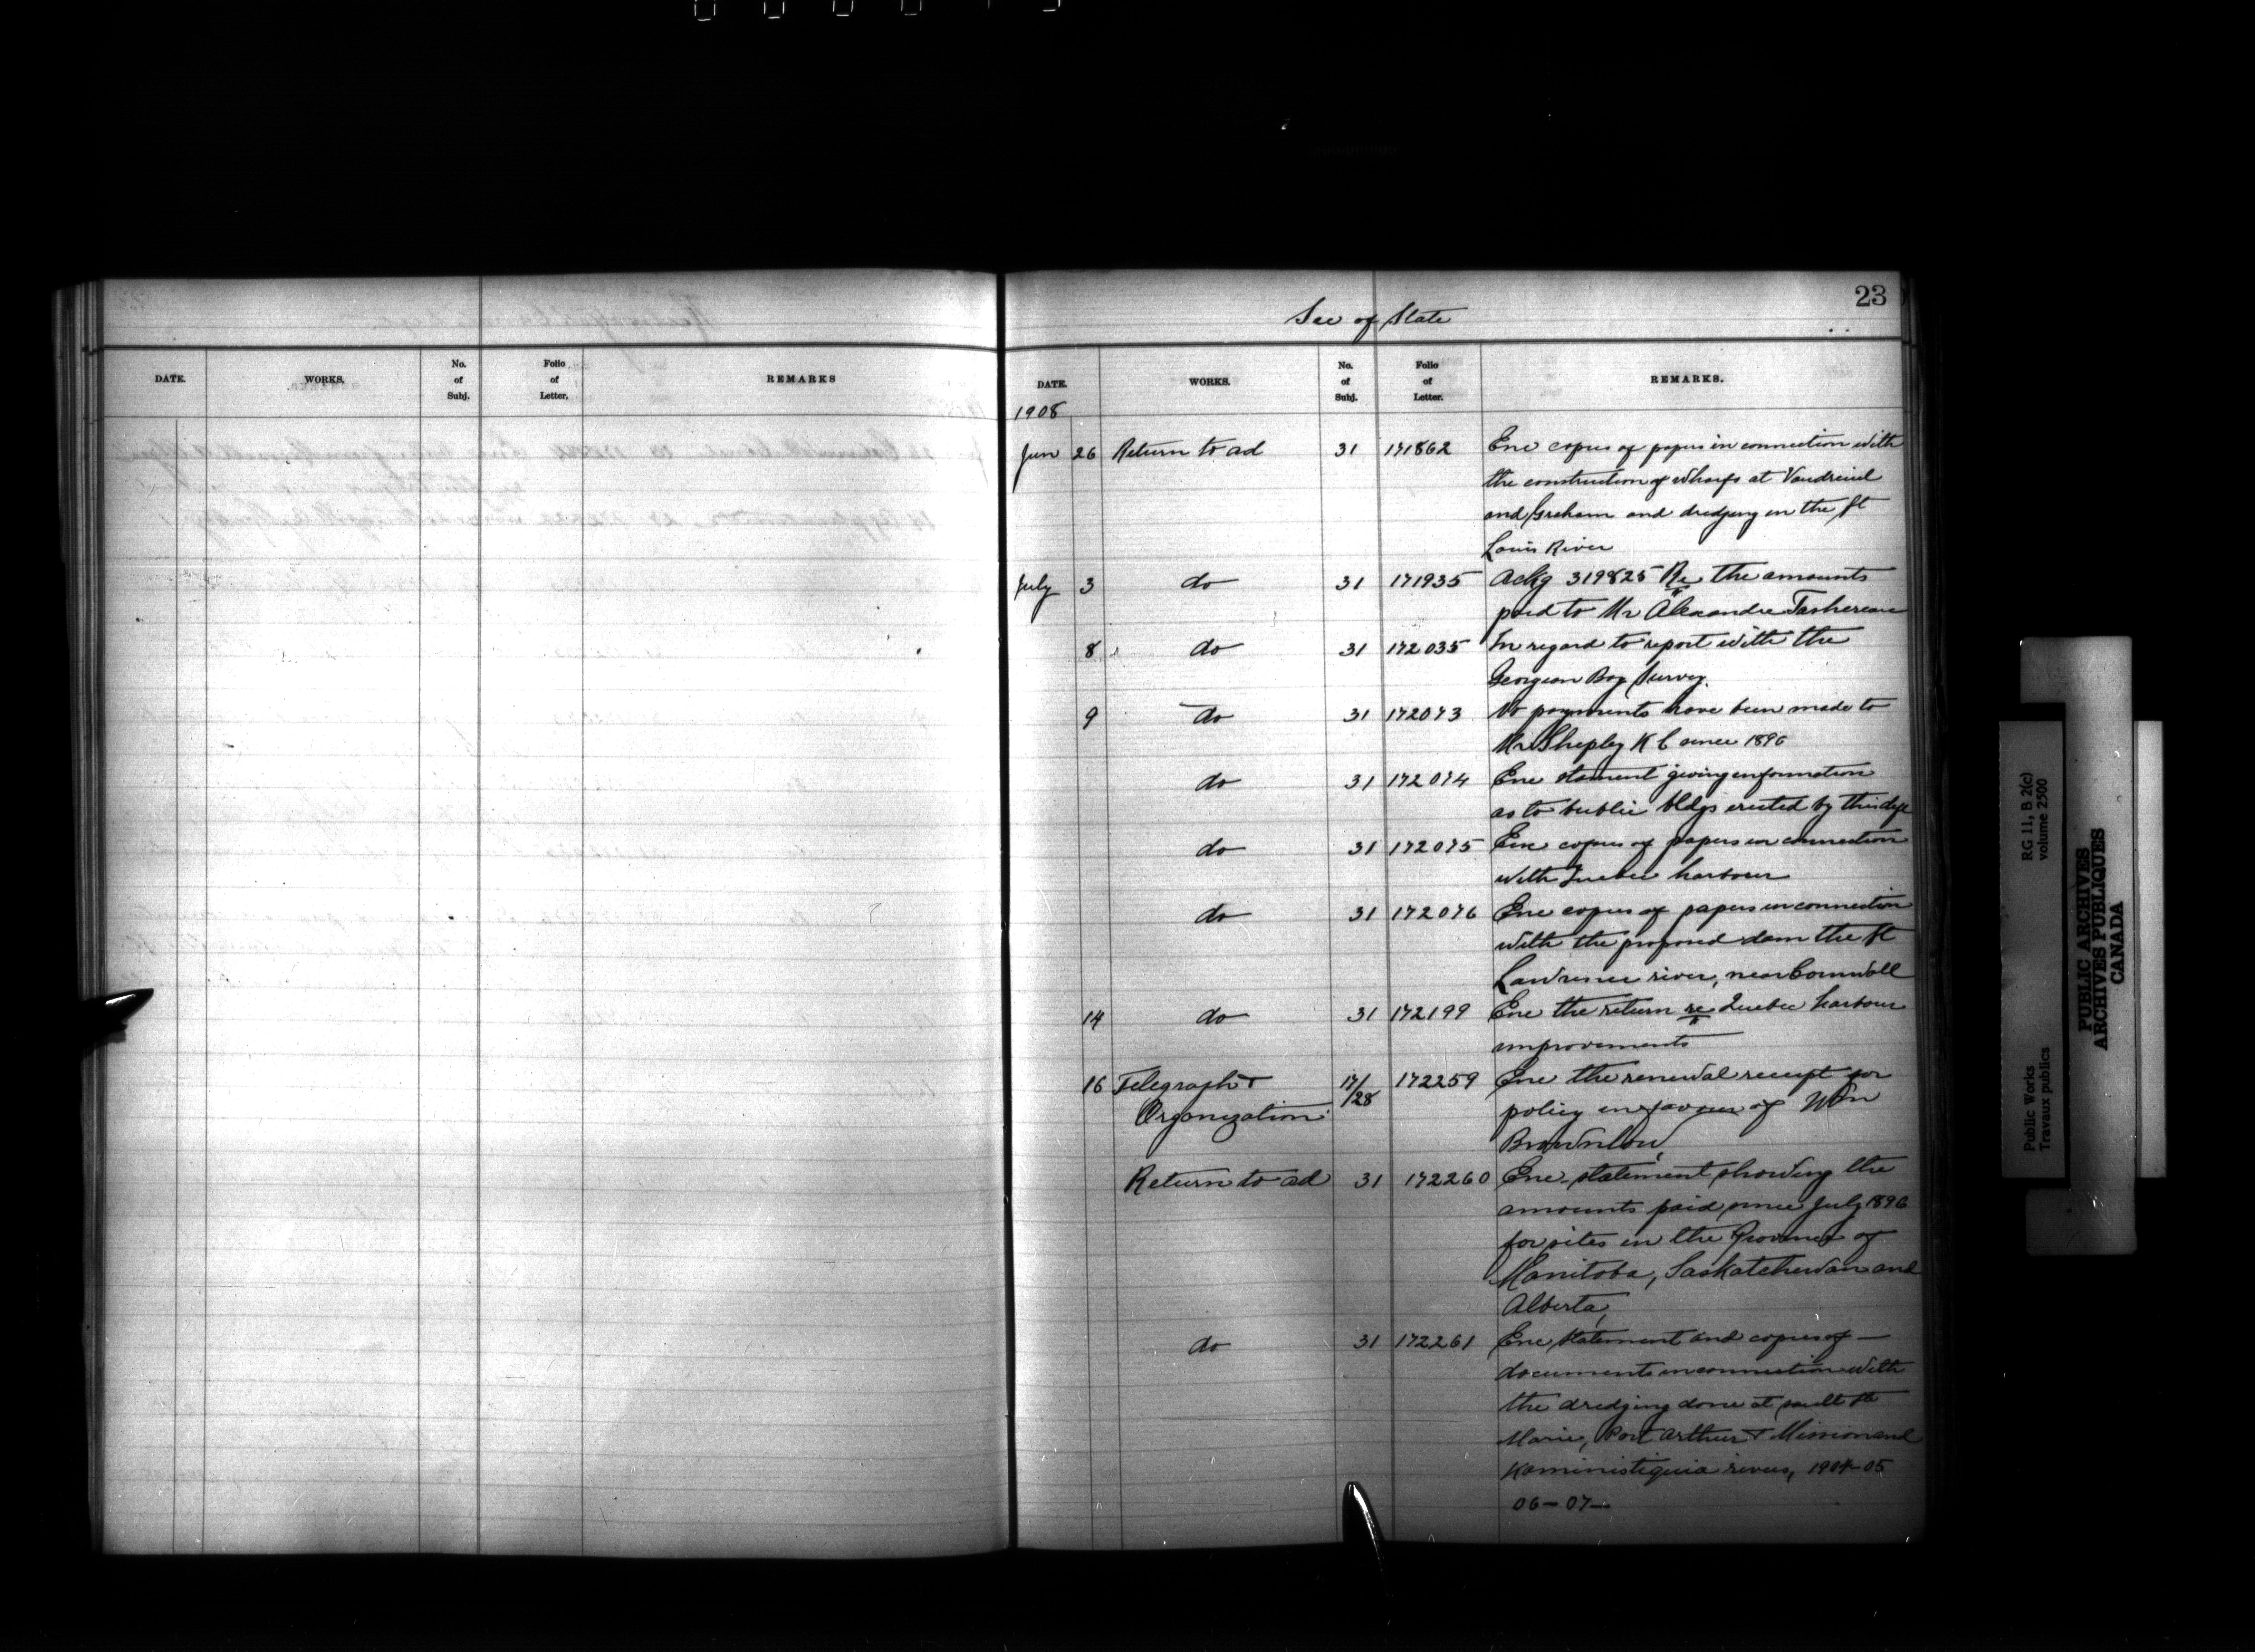 23
Sec of State
DATE. WORKS. No. of Subj. Folio of Letter. REMARKS
DATE. WORKS. No. of Subj. Folio of Letter. REMARKS.
1908
Jun 26 Return to ad 31 171862 Enc copies of papers in connection with
the construction of wharfs at Vaudreuil
and Graham and dredging in the St
Louis River
July 3 do 31 171935 Ackg 319825 Re the amounts
paid to Mr Alexandre Tashereau
8 do 31 172035 In regard to report with the
Georgean Bay Survey.
9 do 31 172073 No payments have been made to
Mr Shepley K C since 1896
do 31 172074 Enc stament giving information
as to public bldgs erected by this dept
do 31 172075 Enc copies of papers in connection
with Quebec harbour
do 31 172076 Enc copies of papers in connection
with the proposed dam the St
Lawrence river, near Cornwall
14 do 31 172199 Enc the return re Quebec harbour
improvements
16 Telegraph & 17/28 172259 Enc the renewal receipt for
Organization policy in favour of Wm
Brownlow
Return to ad 31 172260 Enc statement showing the
amounts paid since July 1896
for sites in the Province of
Manitoba, Saskatchewan and
Alberta,
do 31 172261 Enc statement and copies of —
documents in connection with
the dredging done at Sault Ste
Marie, Port Arthur & Mission and
Kaministiquia rivers, 1904-05
06-07-
Public Works RG 11, B 2(c)
Travaux publics volume 2500
PUBLIC ARCHIVES
ARCHIVES PUBLIQUES
CANADA